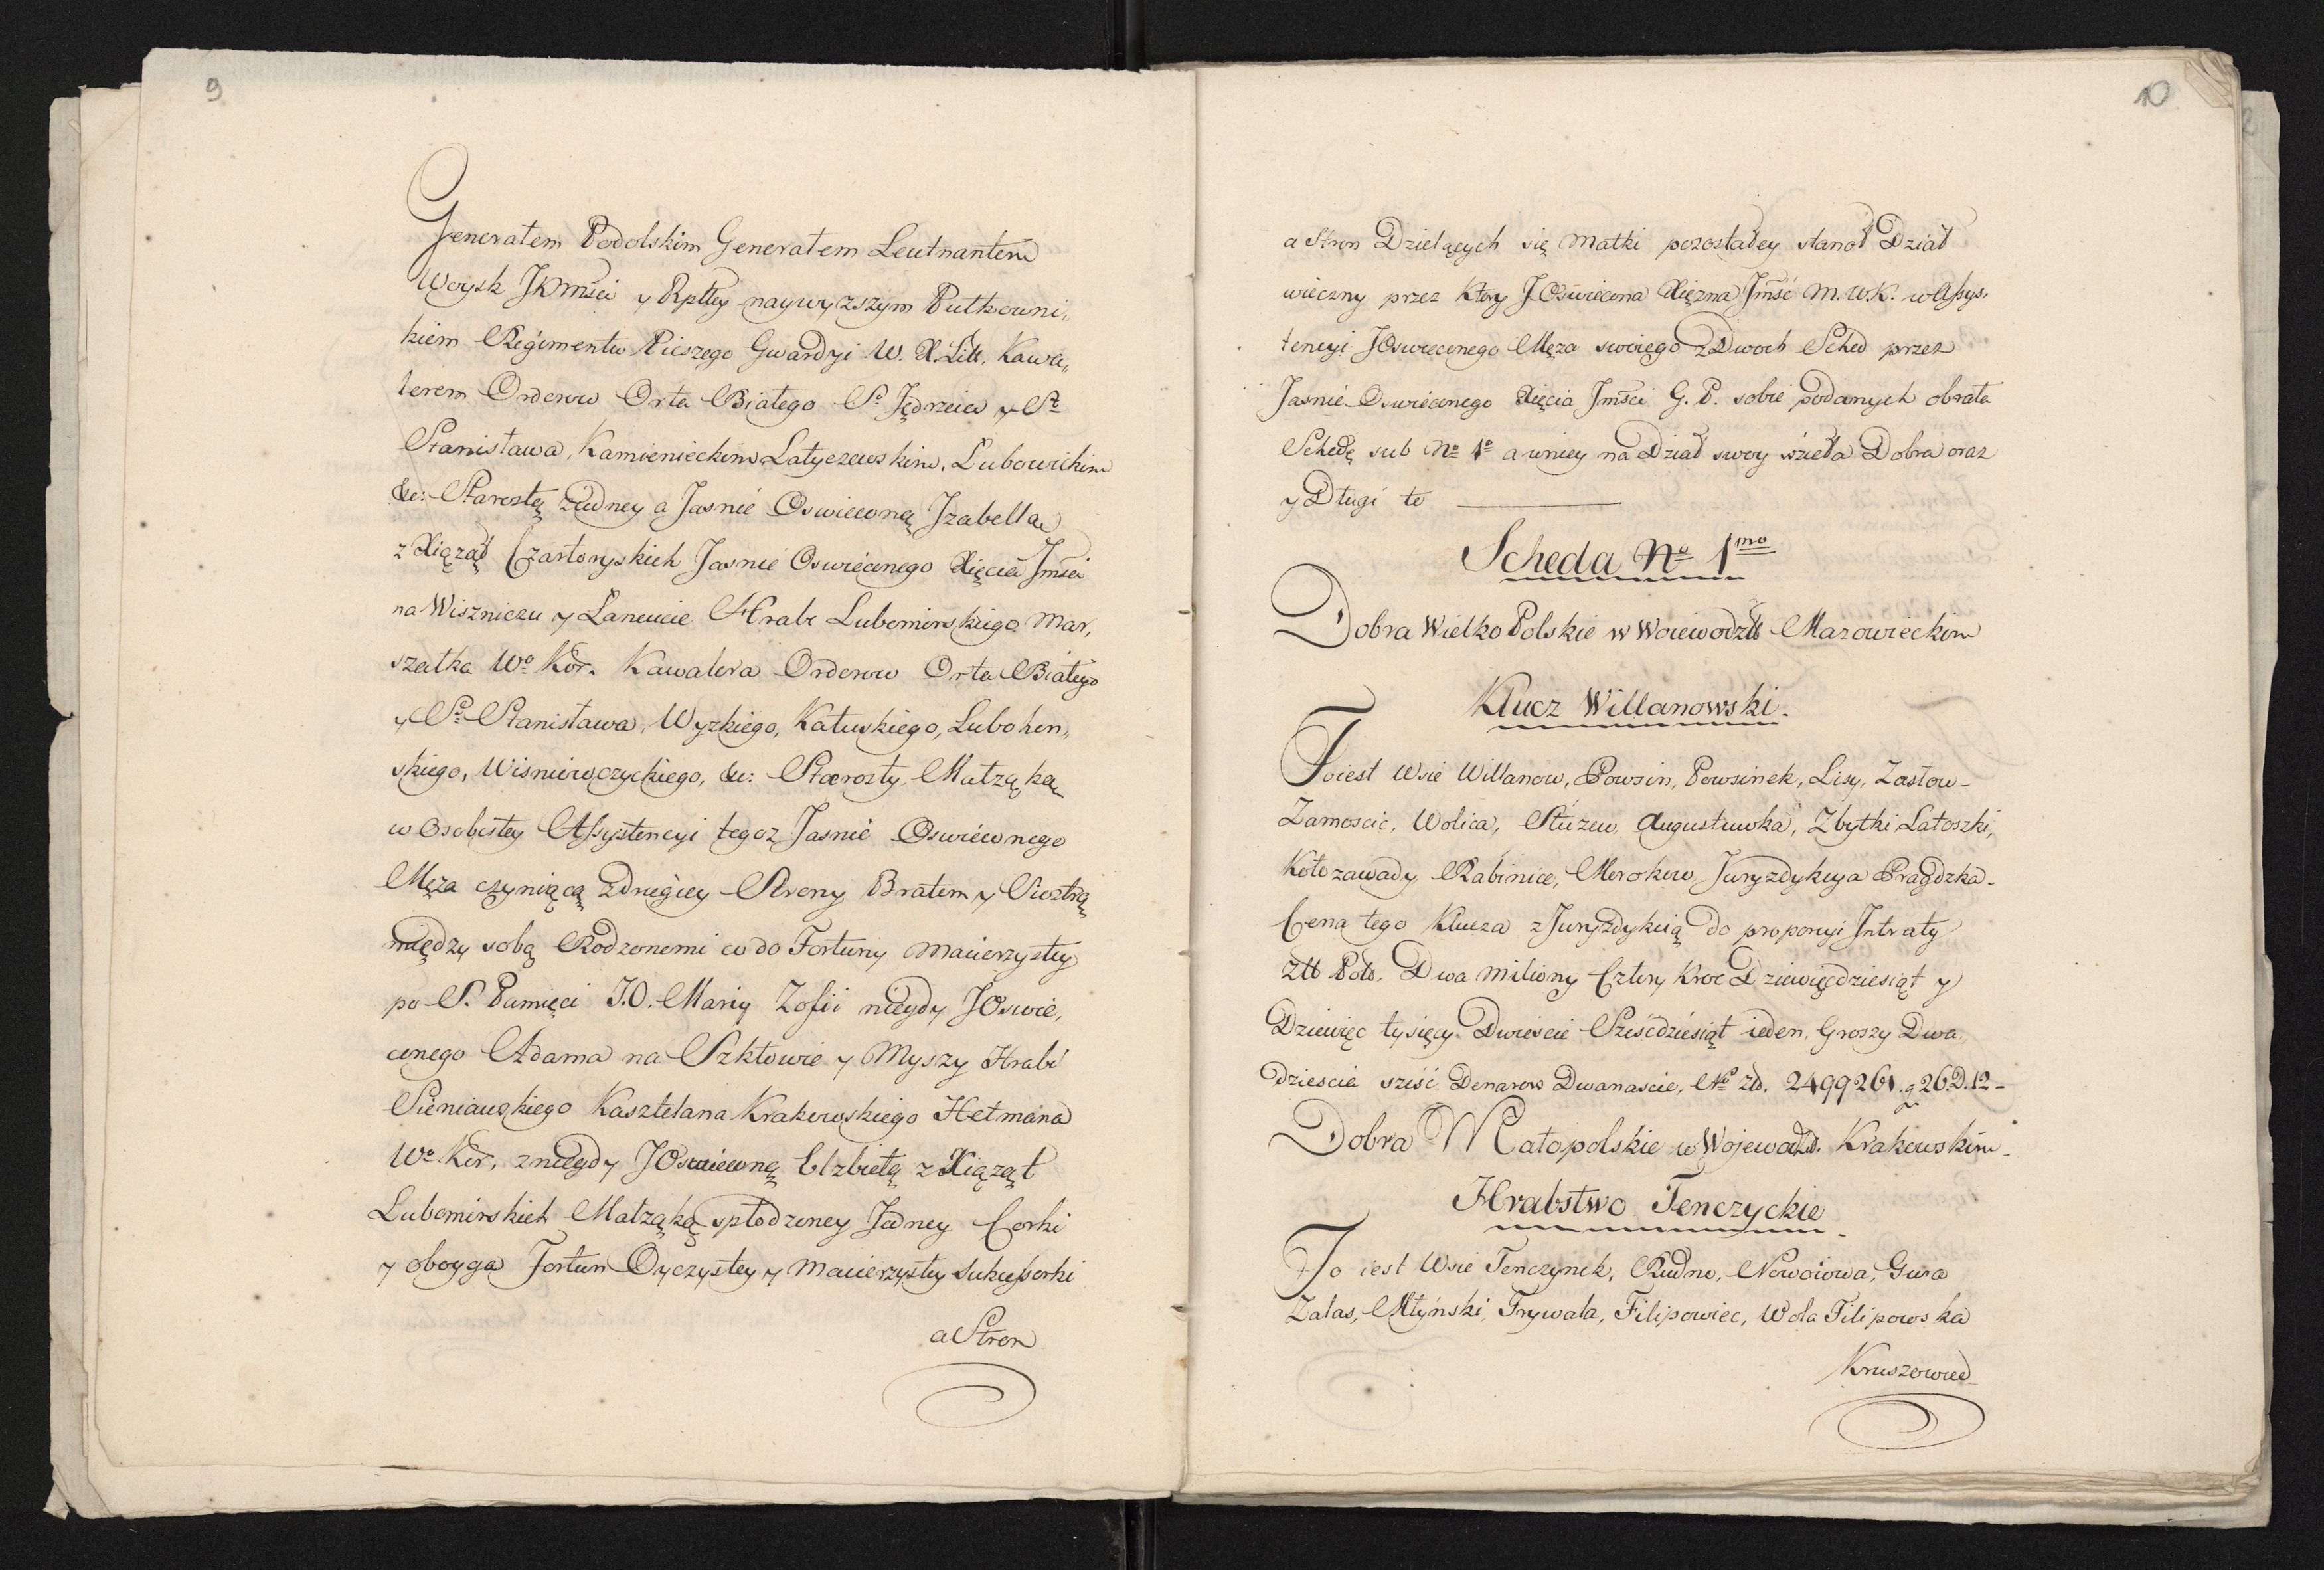 9
Generałem Podolskim Generałem Leutnantem
Woysk JKMści y Rpltey naywyzszym Pułkowni„
kiem Regimentu Pieszego Gwardyi W. X. Litt. Kawa„
lerem Orderow Orła Białego So Jędrzeia y St
Stanisława, Kamienieckim, Latyczewskim, Lubowickim
&c: Starostą ziedney a Jasnie Oswieconą Izabellą
z Xiąząt Czartoryskich Jasnie Oswieconego Xięcia Jmści
na Wiszniczu y Łancucie Hrabi Lubomirskiego Mar,
szałka Wo Kor. Kawalera Orderow Orła Białego
y So Stanisława, Wyzkiego, Kałuskiego, Lubohen„
skiego, Wisniowczyckiego, &c: Starosty, Małząką
w Osobistey Assystencyi tegoz Jasnie Oswieconego
Męza czyniącą z drugiey Strony Bratem y Siostrą
między sobą Rodzonemi co do Fortuny Macierzystey
po S. Pamięci J.O. Maryi Zofii niegdy JOswie,
conego Adama na Szkłowie y Myszy Hrabi
Sieniawskiego Kasztelana Krakowskiego Hetmana
Wo Kor, z niegdy JOswieconą Elzbietą z Xiąząt
Lubomirskich Małząką spłodzoney Jedney Corki
y oboyga Fortun Oyczystey y Macierzystey Sukcessorki
a Stron
10
a Stron Dzielących się Matki pozostałey stanoł Dział
wieczny przez ktory JOświecona Xiężna Jmść M.W.K. w Assys,
tencyi JOswieconego Męza swoiego z Dwoch Sched przez
Jasnie Oswieconego Xięcia Jmści G.P. sobie podanych obrała
Schedę sub No 1o a w niey na Dział swoy wzieła Dobra oraz
y Długi te
Scheda No 1mo
Dobra Wielko Polskie w Woiewodztt Mazowieckim
Klucz Willanowski.
To iest Wsie Willanow, Powsin, Powsinek, Lisy, Zastow-
Zamoscie, Wolica, Słuzew, Augustuwka, Zbytki, Latoszki,
Kołozawady Rabinice, Morokow, Juryzdykcya Pragdzka.
Cena tego Klucza z Juryzdykcią do proporcyi Intraty
Złł Pols. Dwa miliony Cztery Kroc Dziewięćdziesiąt y
Dziewięc tysięcy Dwiescie Sześcdziesiąt ieden, Groszy Dwa
dziescia sześć Denarow Dwanascie, No zł. 2499261. g 26. D. 12-
Dobra Małopolskie w Wojewodz. Krakowskim.
Hrabstwo Tenczyckie
To iest Wsie Tenczynek, Rudno, Nowoiowa, Gura
Zalas, Młyński, Frywałd, Filipowiec, Wola Filipowska
Kruszowied